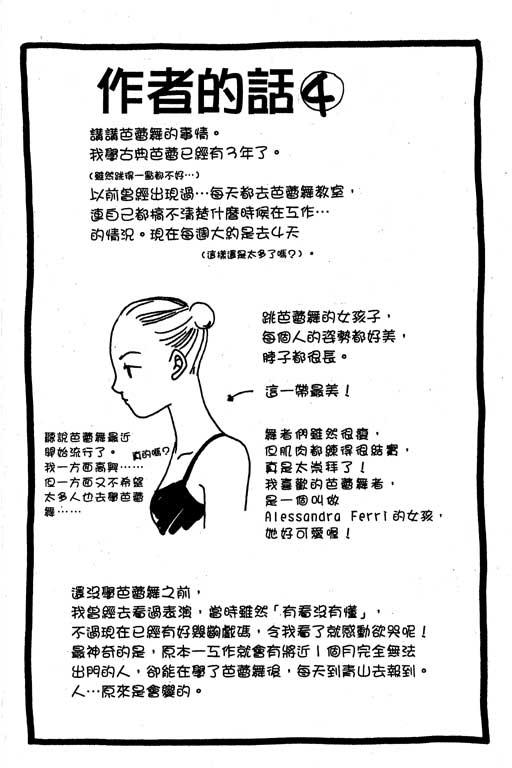 作者的話④
講講芭蕾舞的事情。
我學古典芭蕾已經有3年了。
(雖然跳得一點都不好…)
以前曾經出現過…每天都去芭蕾舞教室，
連自己都搞不清楚什麼時候在工作…
的情況。現在每週大約是去4天
(這樣還是太多了嗎？)。
跳芭蕾舞的女孩子，
每個人的姿勢都好美，
脖子都很長。
這一帶最美！
聽說芭蕾舞最近
開始流行了。
真的嗎？
我一方面高興……
但一方面又不希望
太多人也去學芭蕾
舞……
舞者們雖然很瘦，
但肌肉都練得很結實，
真是太崇拜了！
我喜歡的芭蕾舞者，
是一個叫做
Alessandra Ferri的女孩，
她好可愛喔！
還沒學芭蕾舞之前，
我曾經去看過表演，當時雖然「有看沒有懂」，
不過現在已經有好幾齣戲碼，令我看了就感動欲哭呢！
最神奇的是，原本一工作就會有將近1個月完全無法
出門的人，卻能在學了芭蕾舞後，每天到青山去報到。
人…原來是會變的。